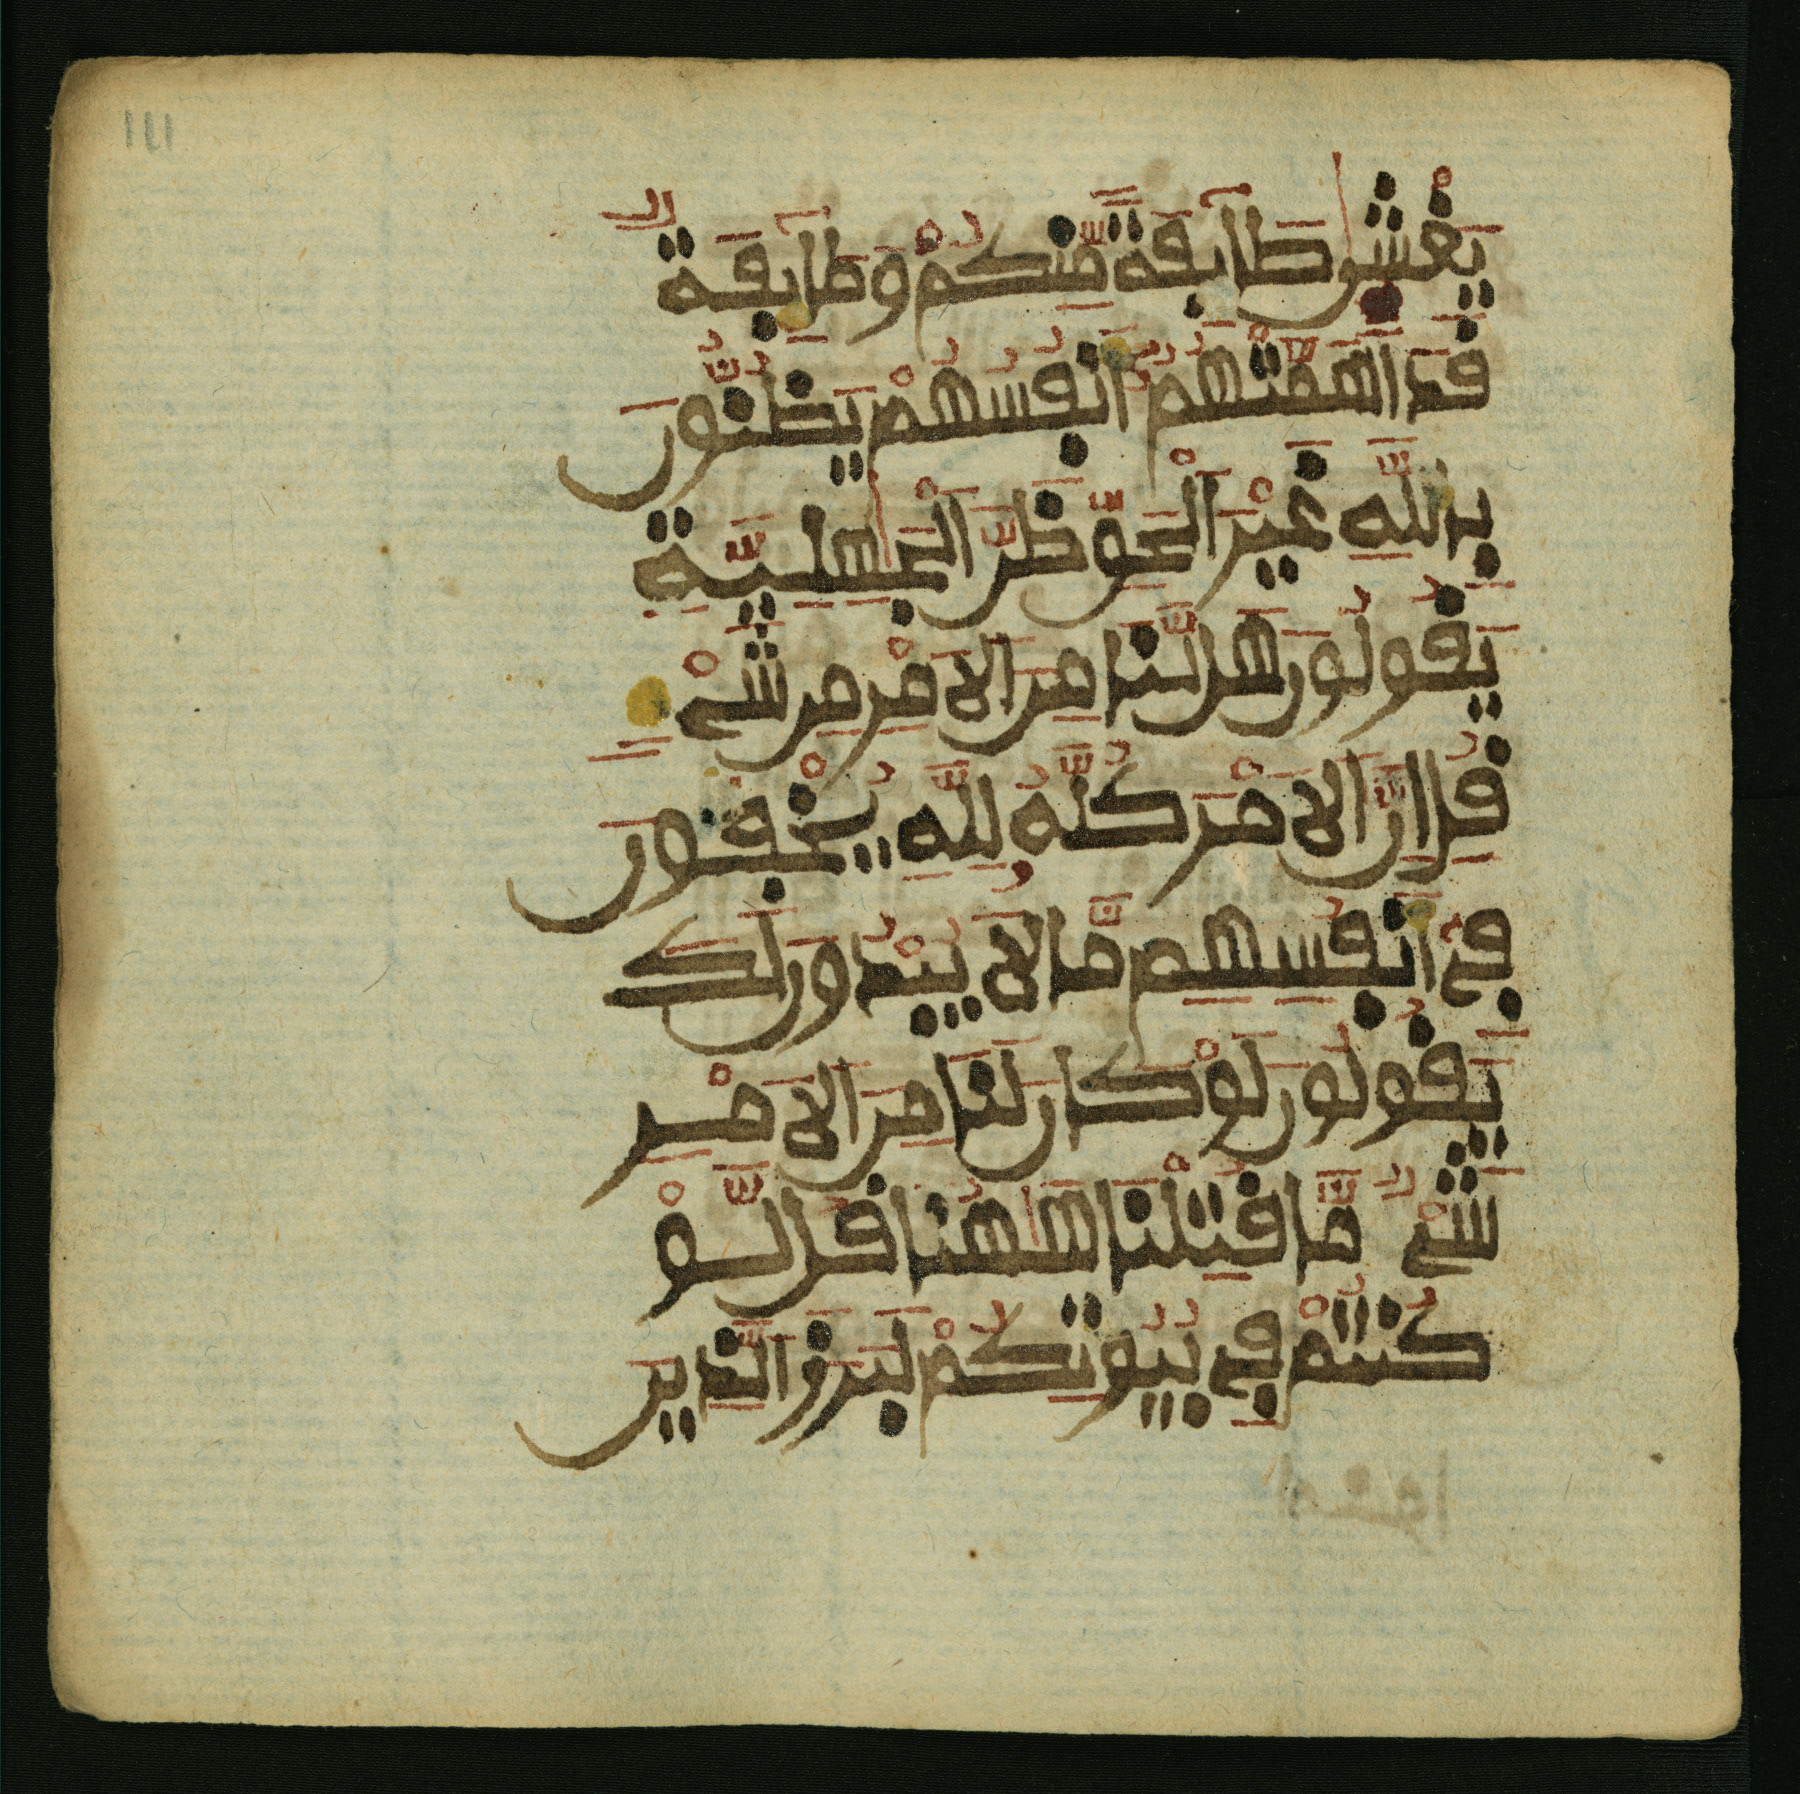 يَغْشىٰ طَآئِفَةً مِّنكُمْ وَطَآئِفَةٌ
قَدَ اَهَمَّتْهُمُ أَنفُسُهُمْ يَظُنُّونَ
بِاللَّهِ غَيْرَ الْحَقِّ ظَنَّ الْجَٰهِلِيَّةِ
يَقُولُونَ هَل لَّنَا مِنَ الَامْرِ مِن شَيْءٍ
قُلِ انَّ الَامْرَ كُلَّهُ لِلَّهِ يُخْفُونَ
فِي أَنفُسِهِم مَّا لَا يُبْدُونَ لَكَ
يَقُولُونَ لَوْ كَانَ لَنَا مِنَ الَامْرِ
شَيْءٌ مَّا قُتِلْنَا هَٰهُنَا قُل لَّوْ
كُنتُمْ فِي بُيُوتِكُمْ لَبَرَزَ الَّذِينَ